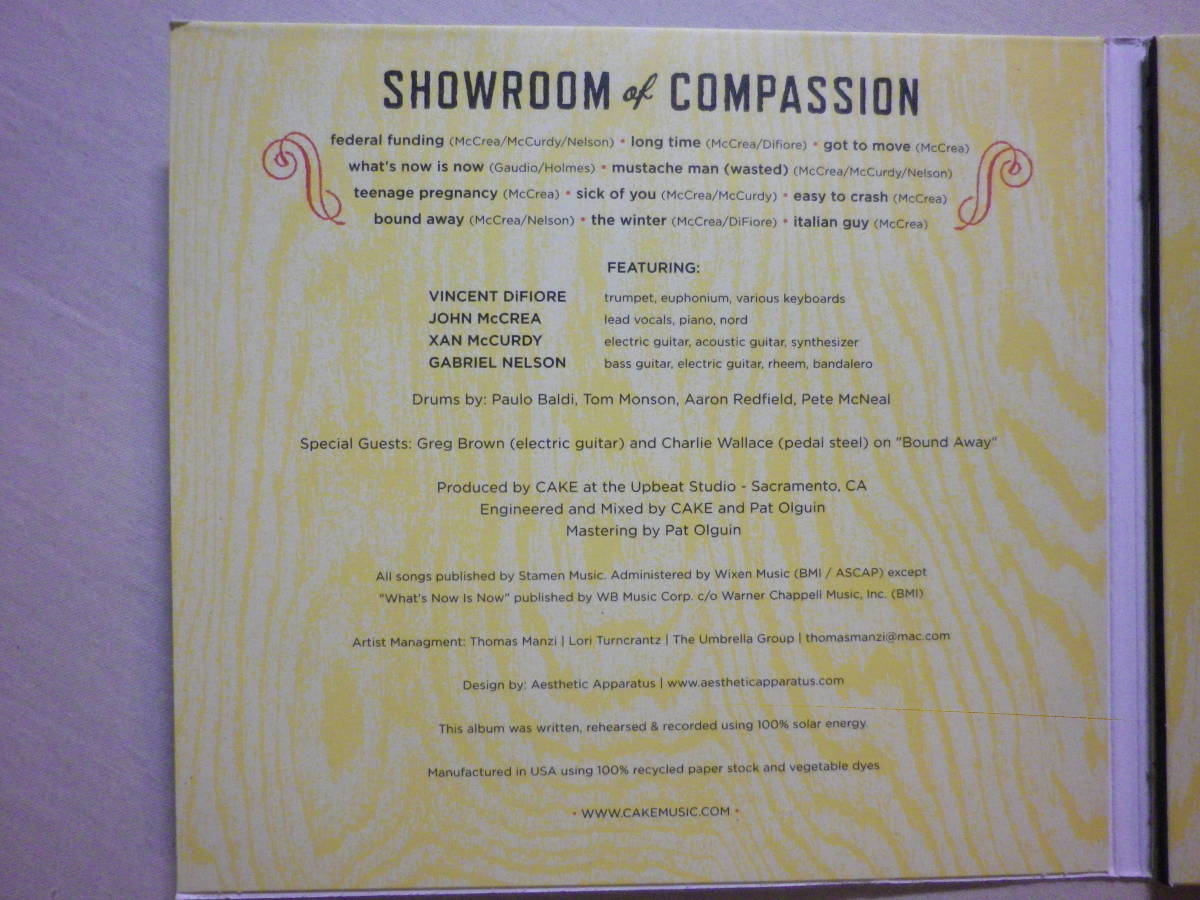 SHOWROOM of COMPASSION
federal funding (McCrea/McCurdy/Nelson) • long time (McCrea/Difiore) • got to move (McCrea)
what's now is now (Gaudio/Holmes) • mustache man (wasted) (McCrea/McCurdy/Nelson)
teenage pregnancy (McCrea) • sick of you (McCrea/McCurdy) • easy to crash (McCrea)
bound away (McCrea/Nelson) • the winter (McCrea/DiFiore) • italian guy (McCrea)
FEATURING:
VINCENT DiFIORE trumpet, euphonium, various keyboards
JOHN McCREA lead vocals, piano, nord
XAN McCURDY electric guitar, acoustic guitar, synthesizer
GABRIEL NELSON bass guitar, electric guitar, rheem, bandalero
Drums by: Paulo Baldi, Tom Monson, Aaron Redfield, Pete McNeal
Special Guests: Greg Brown (electric guitar) and Charlie Wallace (pedal steel) on "Bound Away"
Produced by CAKE at the Upbeat Studio - Sacramento, CA
Engineered and Mixed by CAKE and Pat Olguin
Mastering by Pat Olguin
All songs published by Stamen Music. Administered by Wixen Music (BMI / ASCAP) except
"What's Now Is Now" published by WB Music Corp. c/o Warner Chappell Music, Inc. (BMI)
Artist Managment: Thomas Manzi | Lori Turncrantz | The Umbrella Group | thomasmanzi@mac.com
Design by: Aesthetic Apparatus | www.aestheticapparatus.com
This album was written, rehearsed & recorded using 100% solar energy.
Manufactured in USA using 100% recycled paper stock and vegetable dyes
• WWW.CAKEMUSIC.COM •